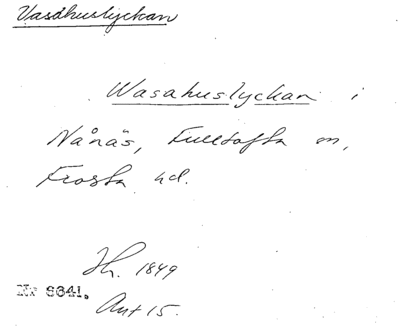 Vasahuslyckan
Wasahuslyckan i
Nånäs, Fulltofta sn,
Frosta hd.
Jh. 1849
Nr 6641.
Akt 15.